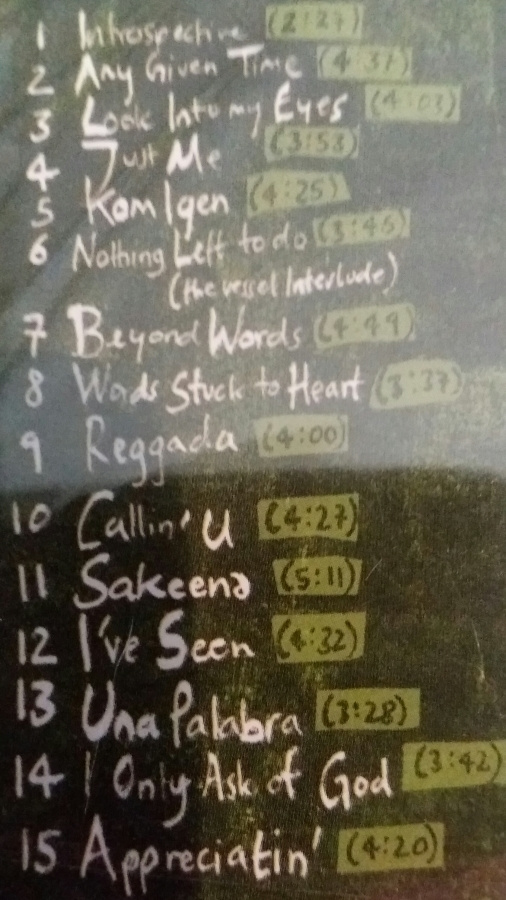 1 Introspective (2:27)
2 Any Given Time (4:37)
3 Look Into my Eyes (4:03)
4 Just Me (3:53)
5 Kom Igen (4:25)
6 Nothing Left to do (3:46)
(the vessel Interlude)
7 Beyond Words (4:49)
8 Words Stuck to Heart (3:37)
9 Reggada (4:00)
10 Callin' U (4:27)
11 Sakeena (5:11)
12 I've Seen (4:32)
13 Una Palabra (3:28)
14 I Only Ask of God (3:42)
15 Appreciatin' (4:20)